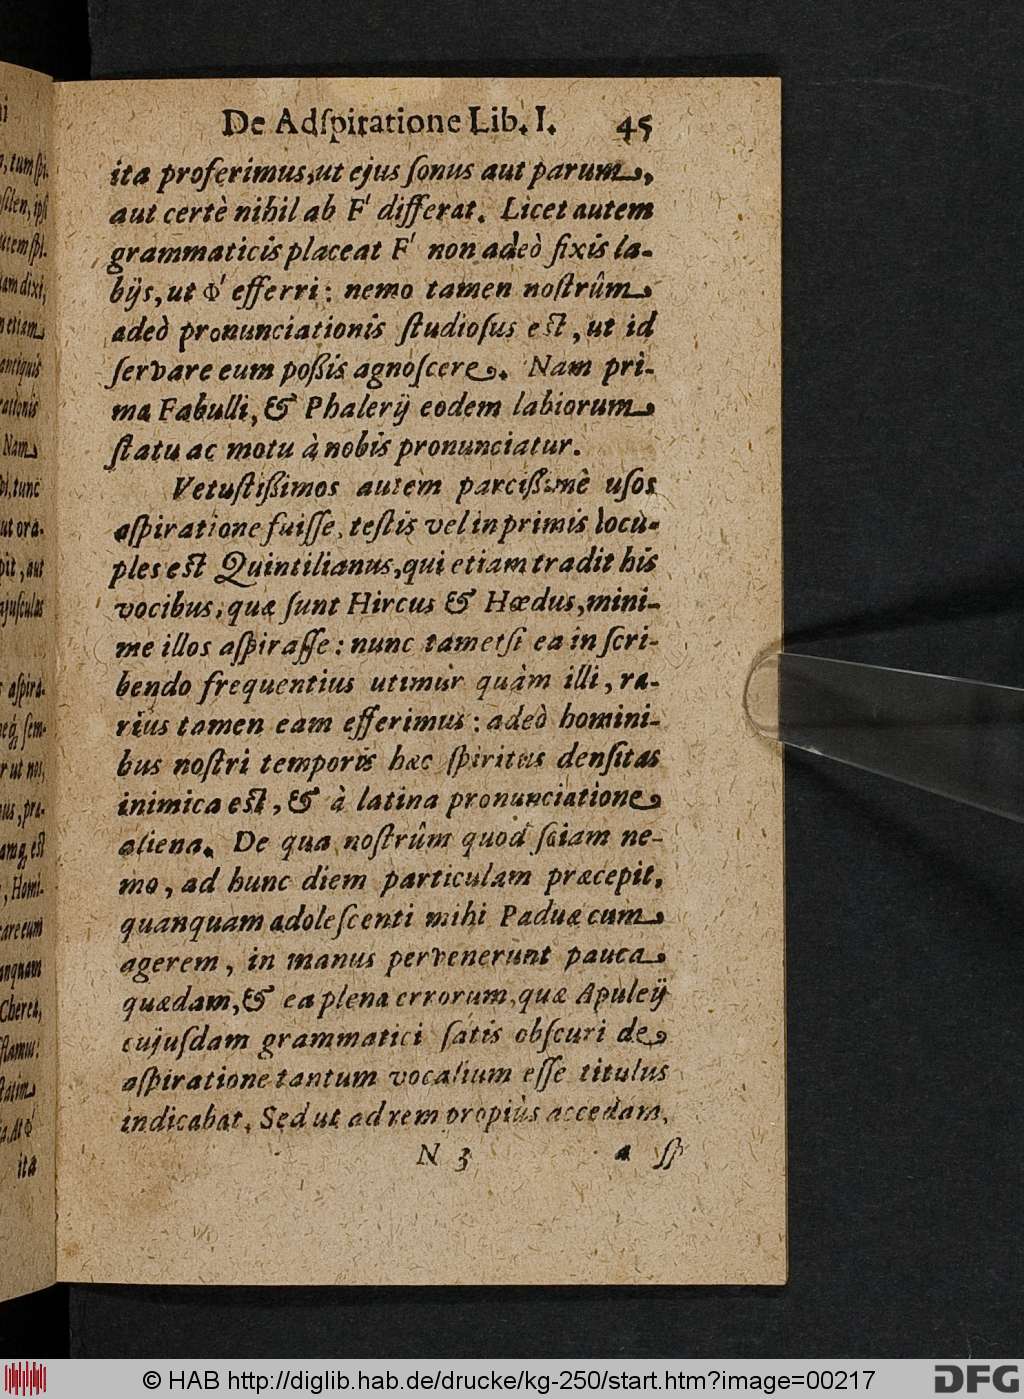 De Adſpiratione Lib. I. 45
ita proferimus, ut ejus ſonus aut parum,
aut certè nihil ab F' differat. Licet autem
grammaticis placeat F' non adeò fixis la-
bijs, ut Φ' efferri: nemo tamen noſtrûm
adeò pronunciationis ſtudioſus eſt, ut id
ſervare eum poßis agnoſcere. Nam pri-
ma Fabulli, & Phalerij eodem labiorum
ſtatu ac motu à nobis pronunciatur.
Vetuſtißimos autem parcißimè uſos
aſpiratione fuiſſe, teſtis vel inprimis locu-
ples eſt Quintilianus, qui etiam tradit his
vocibus, quæ ſunt Hircus & Hœdus, mini-
me illos aſpiraſſe: nunc tametſi ea in ſcri-
bendo frequentius utimur quàm illi, ra-
rius tamen eam efferimus: adeò homini-
bus noſtri temporis hæc ſpiritus denſitas
inimica eſt, & à latina pronunciatione
aliena. De qua noſtrûm quod ſciam ne-
mo, ad hunc diem particulam præcepit,
quanquam adoleſcenti mihi Paduæ cum
agerem, in manus pervenerunt pauca
quædam, & ea plena errorum, quæ Apuleij
cujuſdam grammatici ſatis obſcuri de
aſpiratione tantum vocalium eſſe titulus
indicabat. Sed ut ad rem propiùs accedam,
N 3 aſp
© HAB http://diglib.hab.de/drucke/kg-250/start.htm?image=00217
DFG